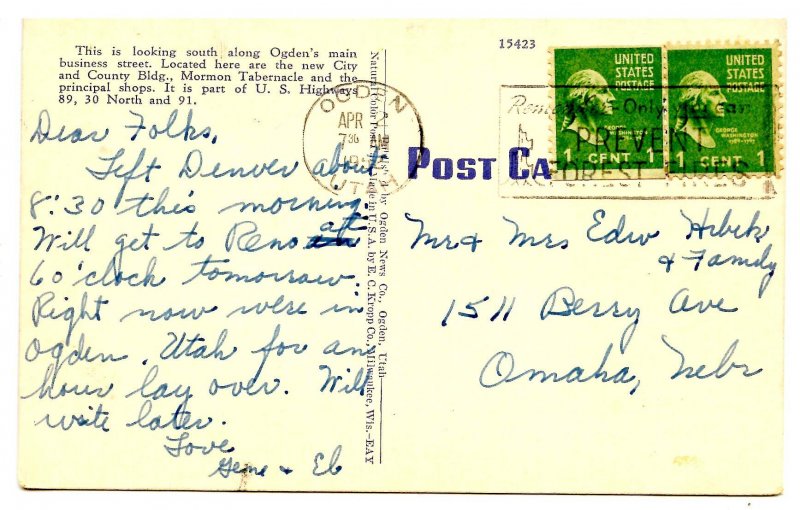 This is looking south along Ogden's main
business street. Located here are the new City
and County Bldg., Mormon Tabernacle and the
principal shops. It is part of U. S. Highways
89, 30 North and 91.
Dear Folks,
Left Denver about
8:30 this morning.
Will get to Reno at
6 o'clock tomorrow.
Right now were in
Ogden, Utah for an
hour lay over. Will
write later.
Love
Gene & Eb
Natural Color Post Made in U.S.A. by E. C. Kropp Co., Milwaukee, Wis.—EAY
by Ogden News Co., Ogden, Utah
OGDEN
APR
730
UTAH
15423
POST CA
UNITED
STATES
POSTAGE
GEORGE
WASHINGTON
1 CENT 1
UNITED
STATES
POSTAGE
GEORGE
WASHINGTON
1789-1797
1 CENT 1
Remember - Only you can
PREVENT
FOREST FIRES
Mr & Mrs Edw
& Family
1511 Berry Ave
Omaha, Nebr